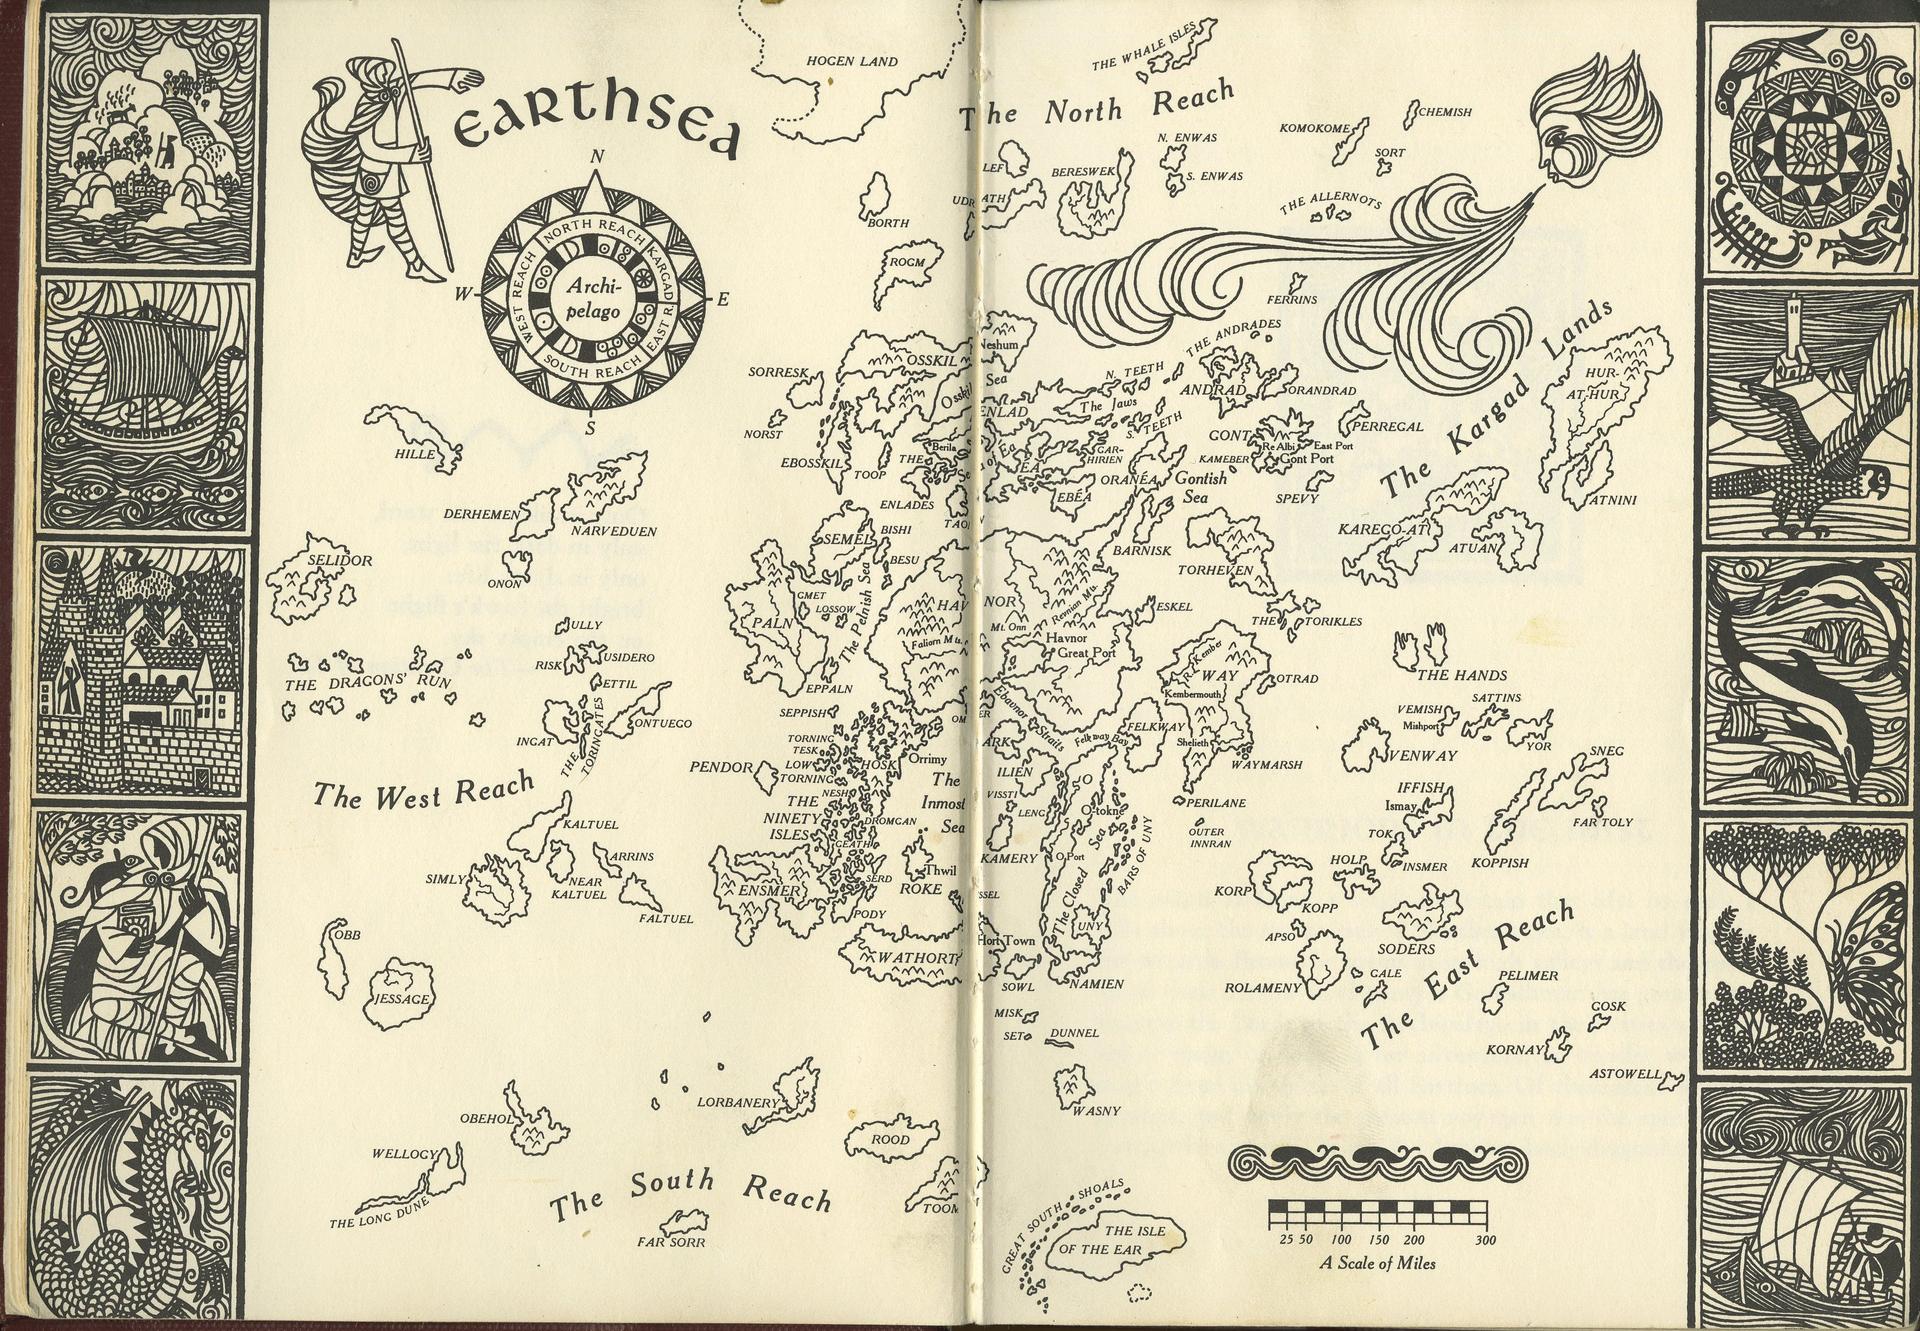 HOGEN LAND
THE WHALE ISLES
EARTHSEA
The North Reach
CHEMISH
KOMOKOME
SORT
N. ENWAS
S. ENWAS
BERESWEK
THE ALLERNOTS
BORTH
ROGM
FERRINS
N
W
E
S
NORTH REACH
KARGAD
EAST R.
SOUTH REACH
WEST REACH
Archi-
pelago
Neshum
Sea
OSSKIL
SORRESK
NORST
EBOSSKIL
TOOP
THE
ENLADES
Berila
THE ANDRADES
N. TEETH
The Jaws
S. TEETH
ANDRAD
ORANDRAD
GONT
Re Albi
East Port
Gont Port
KAMEBER
PERREGAL
SPEVY
GAR-
HIRIEN
ORANÉA
EBÉA
Gontish
Sea
BARNISK
TORHEVEN
The Kargad Lands
HUR-
AT-HUR
ATNINI
KAREGO-AT
ATUAN
HILLE
DERHEMEN
NARVEDUEN
ONON
SELIDOR
THE DRAGONS' RUN
JULLY
RISK
USIDERO
ETTIL
INGAT
THE TORINGATES
ONTUEGO
The West Reach
SEMEL
BISHI
BESU
PALN
GMET
LOSSOW
The Pelnish Sea
EPPALN
SEPPISH
HAVNOR
Faliorn Mts.
Mt. Onn
Revnian Mts.
Havnor
Great Port
ESKEL
THE TORIKLES
THE HANDS
R. Kember
WAY
Kembermouth
OTRAD
FELKWAY
Felkway Bay
Shelieth
WAYMARSH
Ebavnor Straits
ARK
ILIEN
VISSTI
LENG
KAMERY
O
O-tokne
O-Port
The Closed Sea
BARS OF UNY
UNY
NAMIEN
PERILANE
OUTER
INNRAN
SATTINS
VEMISH
Mishport
YOR
VENWAY
SNEG
FAR TOLY
KOPPISH
IFFISH
Ismay
TOK
INSMER
HOLP
KORP
KOPP
SODERS
APSO
ROLAMENY
GALE
The East Reach
PELIMER
GOSK
KORNAY
ASTOWELL
PENDOR
TORNING
TESK
LOW
TORNING
HOSK
Orrimy
NESH
THE
NINETY
ISLES
DROMGAN
GEATH
SERD
PODY
The
Inmost
Sea
Thwil
ROKE
ENSMER
WATHORT
Hort Town
SOWL
MISK
SET
DUNNEL
WASNY
KALTUEL
ARRINS
NEAR
KALTUEL
SIMLY
FALTUEL
OBB
JESSAGE
OBEHOL
LORBANERY
ROOD
WELLOGY
THE LONG DUNE
The South Reach
FAR SORR
TOOM
GREAT SOUTH SHOALS
THE ISLE
OF THE EAR
25 50 100 150 200 300
A Scale of Miles